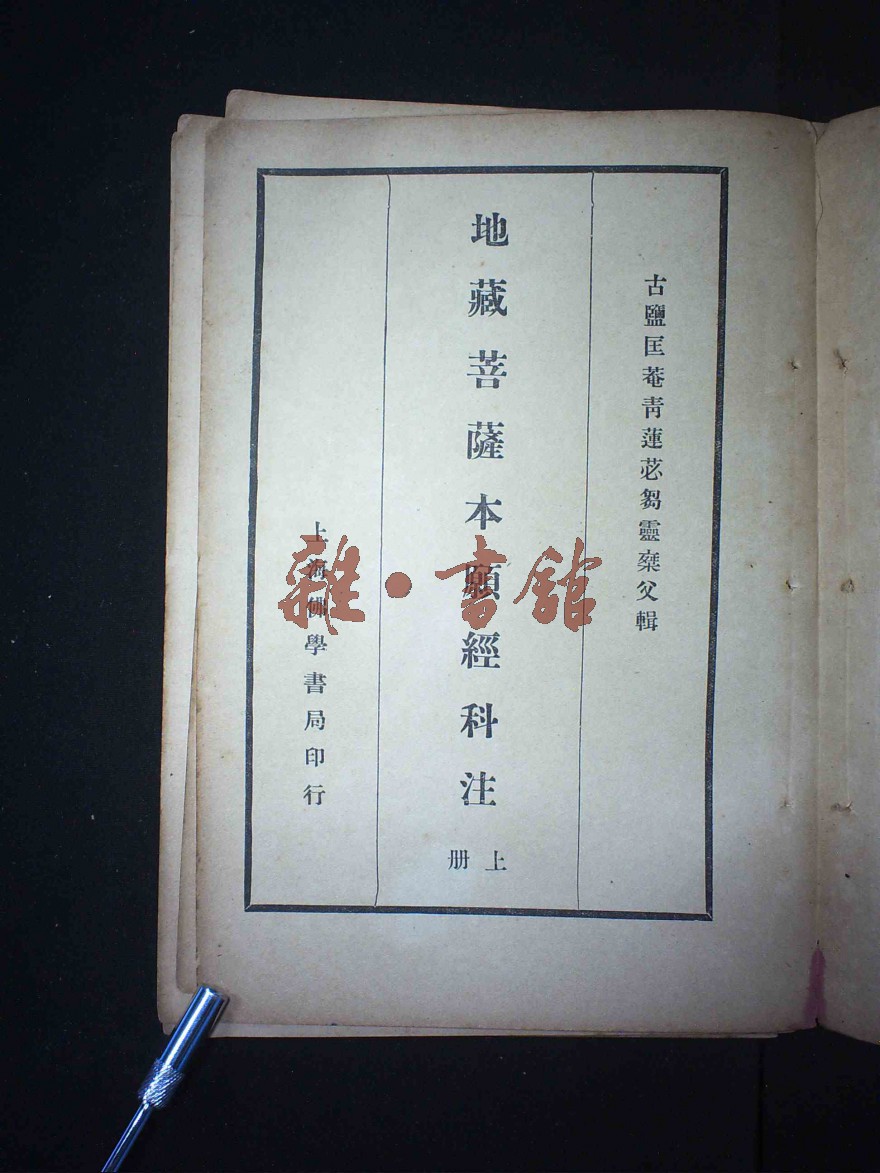 古鹽匡菴青蓮苾芻靈椉父輯
地藏菩薩本願經科注
上册
上海佛學書局印行
雜·書館